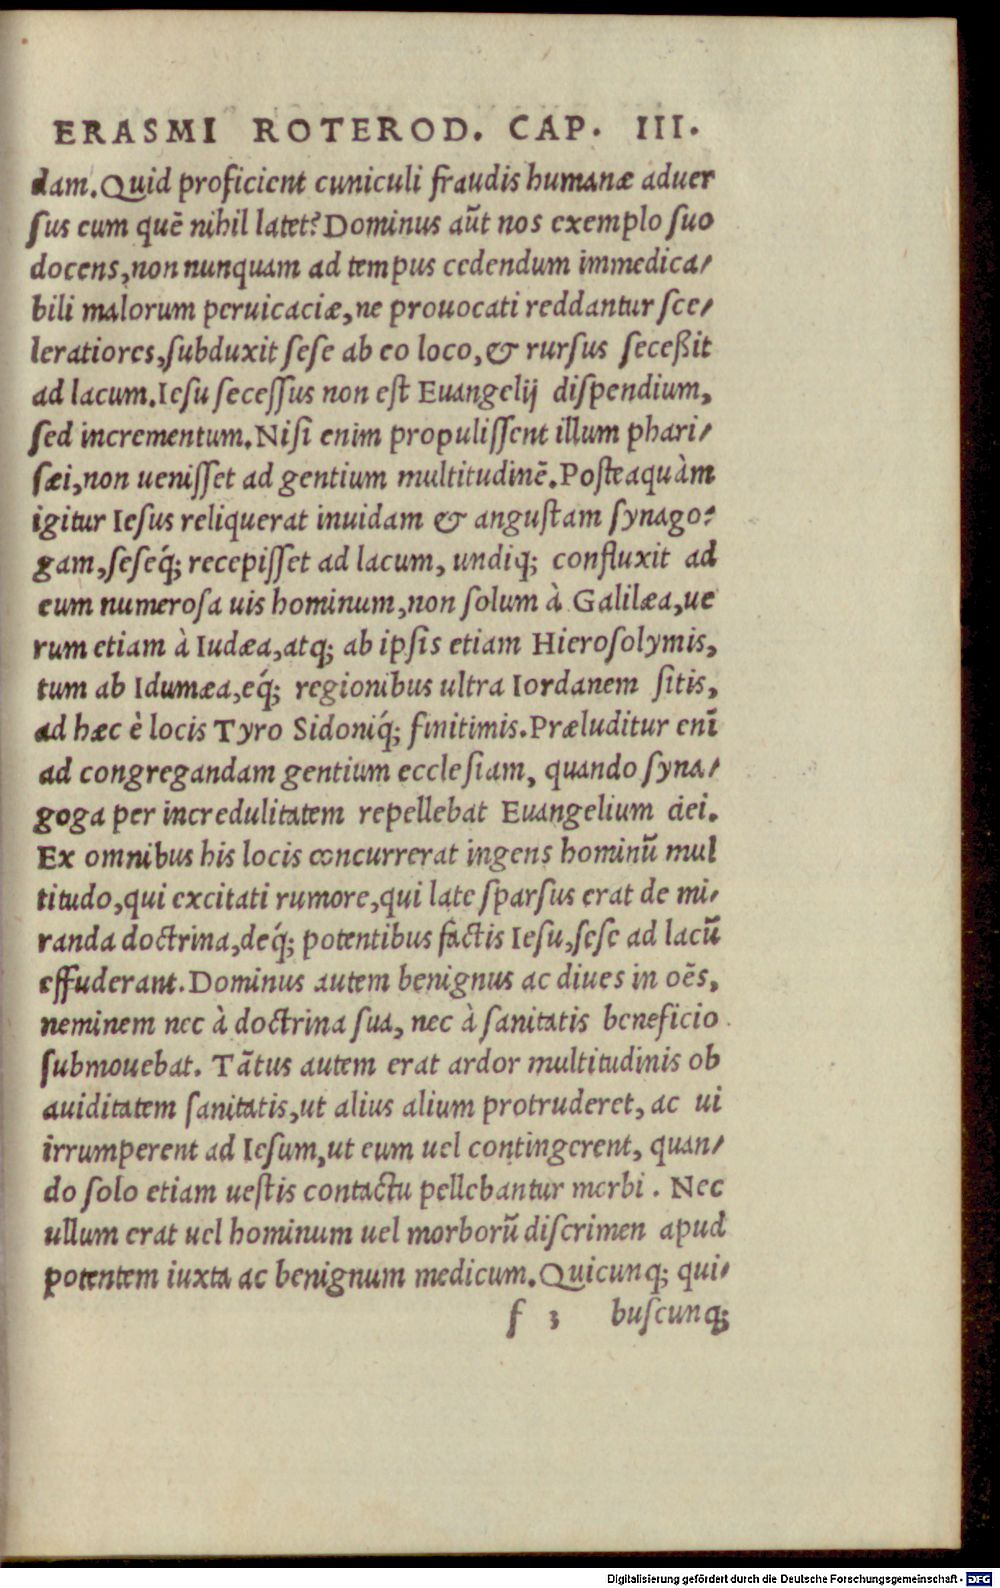 ERASMI ROTEROD. CAP. III.
dam. Quid proficient cuniculi fraudis humanæ aduer
sus eum quē nihil latet? Dominus aūt nos exemplo suo
docens, non nunquam ad tempus cedendum immedica/
bili malorum peruicaciæ, ne prouocati reddantur sce/
leratiores, subduxit sese ab eo loco, & rursus seceßit
ad lacum. Iesu secessus non est Euangelij dispendium,
sed incrementum. Nisi enim propulissent illum phari/
sæi, non uenisset ad gentium multitudinē. Posteaquàm
igitur Iesus reliquerat inuidam & angustam synago-
gam, seseq́; recepisset ad lacum, undiq; confluxit ad
eum numerosa uis hominum, non solum à Galilæa, ue
rum etiam à Iudæa, atq; ab ipsis etiam Hierosolymis,
tum ab Idumæa, eq́; regionibus ultra Iordanem sitis,
ad hæc è locis Tyro Sidoniq́; finitimis. Præluditur enī
ad congregandam gentium ecclesiam, quando syna/
goga per incredulitatem repellebat Euangelium dei.
Ex omnibus his locis concurrerat ingens hominū mul
titudo, qui excitati rumore, qui late sparsus erat de mi/
randa doctrina, deq́; potentibus factis Iesu, sese ad lacū
effuderant. Dominus autem benignus ac diues in oēs,
neminem nec à doctrina sua, nec à sanitatis beneficio
submouebat. Tātus autem erat ardor multitudinis ob
auiditatem sanitatis, ut alius alium protruderet, ac ui
irrumperent ad Iesum, ut eum uel contingerent, quan/
do solo etiam uestis contactu pellebantur morbi. Nec
ullum erat uel hominum uel morborū discrimen apud
potentem iuxta ac benignum medicum. Quicunq; qui/
f 3 buscunq;
Digitalisierung gefördert durch die Deutsche Forschungsgemeinschaft - DFG